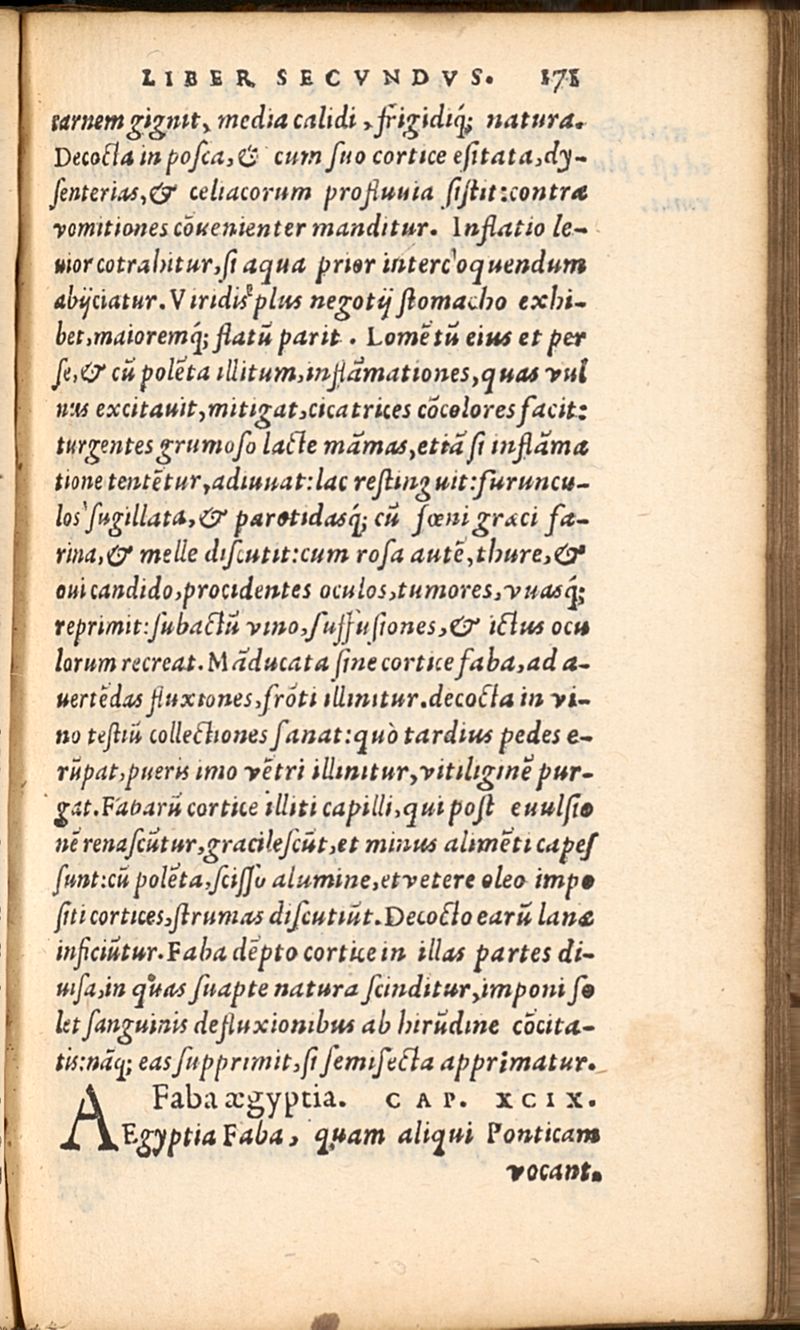 LIBER SECVNDVS. 171
carnem gignit, media calidi, frigidiq́; natura.
Decocta in posca, & cum suo cortice esitata, dy-
senterias, & celiacorum profluuia sistit: contra
vomitiones cōuenienter manditur. Inflatio le-
uior cotrahitur, si aqua prior inter coquendum
abijciatur. Viridis plus negotij stomacho exhi-
bet, maioremq́; flatũ parit. Lomẽtũ eius et per
se, & cũ polẽta illitum, inflāmationes, quas vul
nus excitauit, mitigat, cicatrices cōcolores facit:
turgentes grumoso lacte māmas, etiā si inflāma
tione tentẽtur, adiuuat: lac restinguit: furuncu-
los sugillata, & parotidasq́; cũ fœni græci fa-
rina, & melle discutit: cum rosa autẽ, thure, &
oui candido, procidentes oculos, tumores, vuasq́;
reprimit: subactũ vino, suffusiones, & ictus ocu
lorum recreat. Māducata sine cortice faba, ad a-
uertẽdas fluxiones, frōti illinitur. decocta in vi-
no testiũ collectiones sanat: quò tardius pedes e-
rũpat, pueris imo vẽtri illinitur, vitiliginẽ pur-
gat. Fabarũ cortice illiti capilli, qui post euulsio
nẽ renascũtur, gracilescũt, et minus alimẽti capes
sunt: cũ polẽta, scisso alumine, et vetere oleo impo
siti cortices, strumas discutiũt. Decocto earũ lanæ
inficiũtur. Faba dẽpto cortice in illas partes di-
uisa, in quas suapte natura scinditur, imponi so
let sanguinis defluxionibus ab hirũdine cōcita-
tis: nāq; eas supprimit, si semisecta apprimatur.
Faba ægyptia. CAP. XCIX.
AEgyptia Faba, quam aliqui Ponticam
vocant.